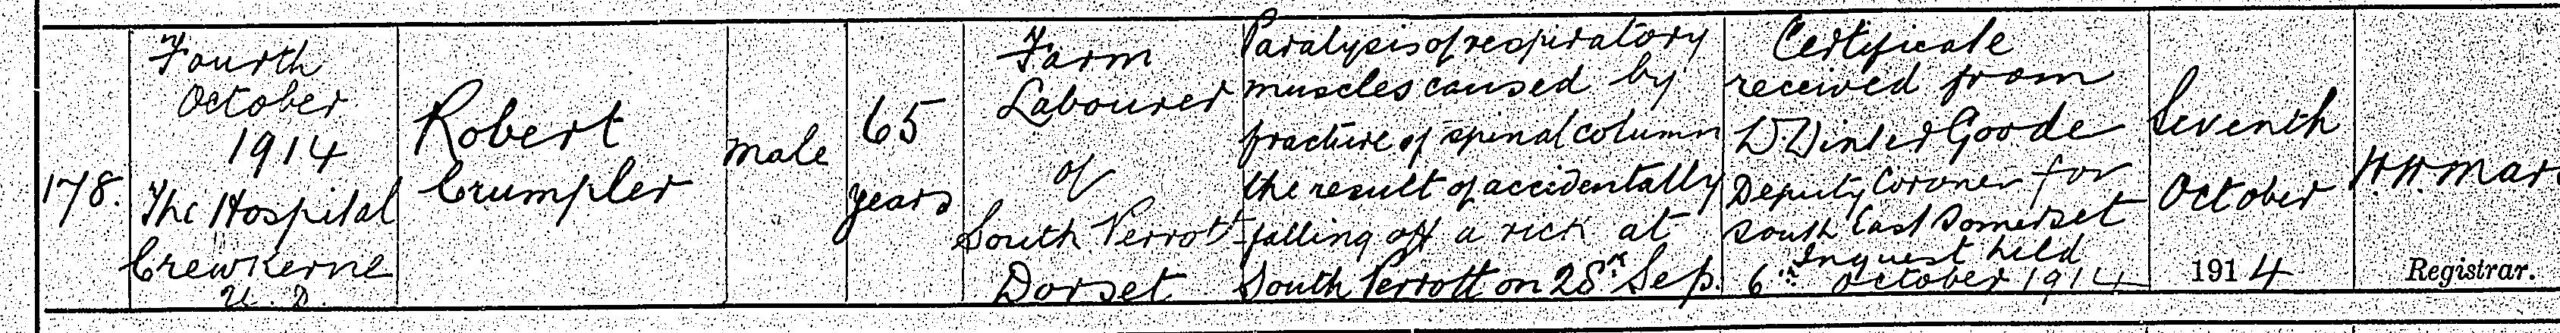 178.
Fourth
October
1914
The Hospital
Crewkerne
U. D.
Robert
Crumpler
male
65
years
Farm
Labourer
of
South Perrott
Dorset
Paralysis of respiratory
muscles caused by
fracture of spinal column
the result of accidentally
falling off a rick at
South Perrott on 28th Sep.
Certificate
received from
Winter Goode
Deputy Coroner for
South East Somerset
Inquest held
6th October 1914
Seventh
October
1914
Registrar.